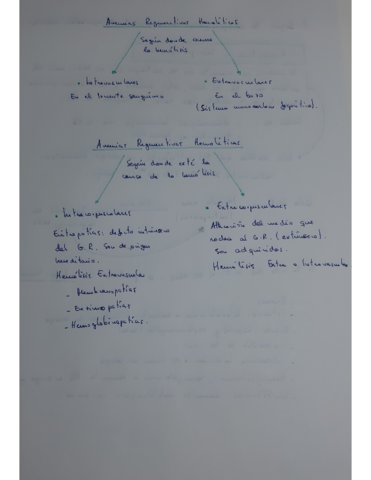 Anemias Regenerativas Hemolíticas
Según donde ocurra
la hemólisis.
• Intravasculares
En el torrente sanguíneo
• Extravasculares
En el bazo
(Sistema mononuclear fagocítico).
Anemias Regenerativas Hemolíticas
Según donde esté la
causa de la hemólisis.
• Intracorpusculares
Eritropatías: defecto intrínseco
del G.R. Son de origen
hereditario.
Hemólisis Extravascular
- Membranopatías
- Enzimopatías
- Hemoglobinopatías.
• Extracorpusculares
Alteración del medio que
rodea al G.R. (extrínseca).
Son adquiridas.
Hemólisis Extra o Intravascular